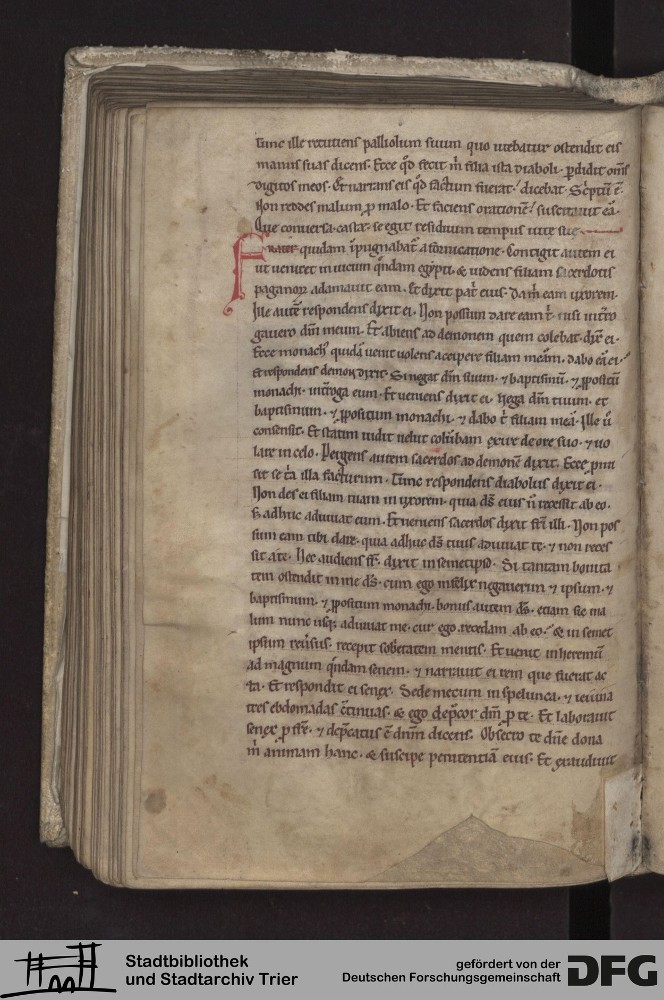 Tunc ille recutiens palliolum suum quo utebatur ostendit eis
manus suas dicens. Ecce qd̄ fecit m̄ filia ista diaboli. ꝑdidit om̄s
digitos meos. Et narrans eis qd̄ factum fuerat. dicebat. Sc̄ptū ē.
Non reddes malum ꝓ malo. Et faciens orationē. suscitauit eā.
Que conuersa. caste se egit residuum tempus uite sue
Frater quidam īpugnabat᷑ a fornicatione. Contigit autem ei
ut ueniret in uicum q̄ndam egypti. & uidens filiam sacerdotis
paganoꝝ adamauit eam. Et dixit pat̄ eius. Da m̄ eam uxorem.
Ille autē respondens dixit ei. Non possum dare eam t̄. nisi int̄ro
gauero dm̄ meum. Et abiens ad demonem quem colebat. dix̄ ei.
Ecce monach᷒ quidā uenit uolens accipere filiam meam. dabo eā ei.
Et respondens demon dixit. Si negat dm̄ suum. ⁊ baptismū. ⁊ ꝓpositū
monachi. int̄roga eum. Et ueniens dixit ei. Nega dm̄ tuum. et
baptismum. ⁊ ꝓpositum monachi. ⁊ dabo t̄ filiam meā. Ille ū
consensit. Et statim uidit uelut colūbam exire de ore suo. ⁊ uo
lare in celo. Pergens autem sacerdos ad demonē dixit. Ecce ꝓmi
sit se t̄a illa facturum. Tunc respondens diabolus dixit ei.
Non des ei filiam tuam in uxorem. quia ds̄ eius n̄ recessit ab eo.
s; adhuc adiuuat eum. Et ueniens sacerdos dixit fr̄i illi. Non pos
sum eam tibi dare. quia adhuc ds̄ tuus adiuuat te. ⁊ non reces
sit a te. Hec audiens fr̄. dixit in semetipso. Si tantam bonita
tem ostendit in me ds̄. cum ego infelix negauerim & ipsum. ⁊
baptismum. ⁊ ꝓpositum monachi. bonus autem ds̄. etiam sic ma
lum nunc usq; adiuuat me. cur ego recedam ab eo. & in semet
ipsum reūsus. recepit sobrietatem mentis. Et uenit in heremū
ad magnum q̄ndam senem. ⁊ narrauit ei rem que fuerat ac
ta. Et respondit ei senex. Sede mecum in spelunca. ⁊ ieiuna
tres ebdomadas c̄tinuas. & ego dep̄cor dm̄ ꝓ te. Et laborauit
senex ꝓ fr̄e. ⁊ dep̄catus ē dnm̄ dicens. Obsecro te dn̄e dona
m̄ animam hanc. & suscipe penitentiā eius. Et exaudiuit
Stadtbibliothek
und Stadtarchiv Trier
gefördert von der
Deutschen Forschungsgemeinschaft
DFG